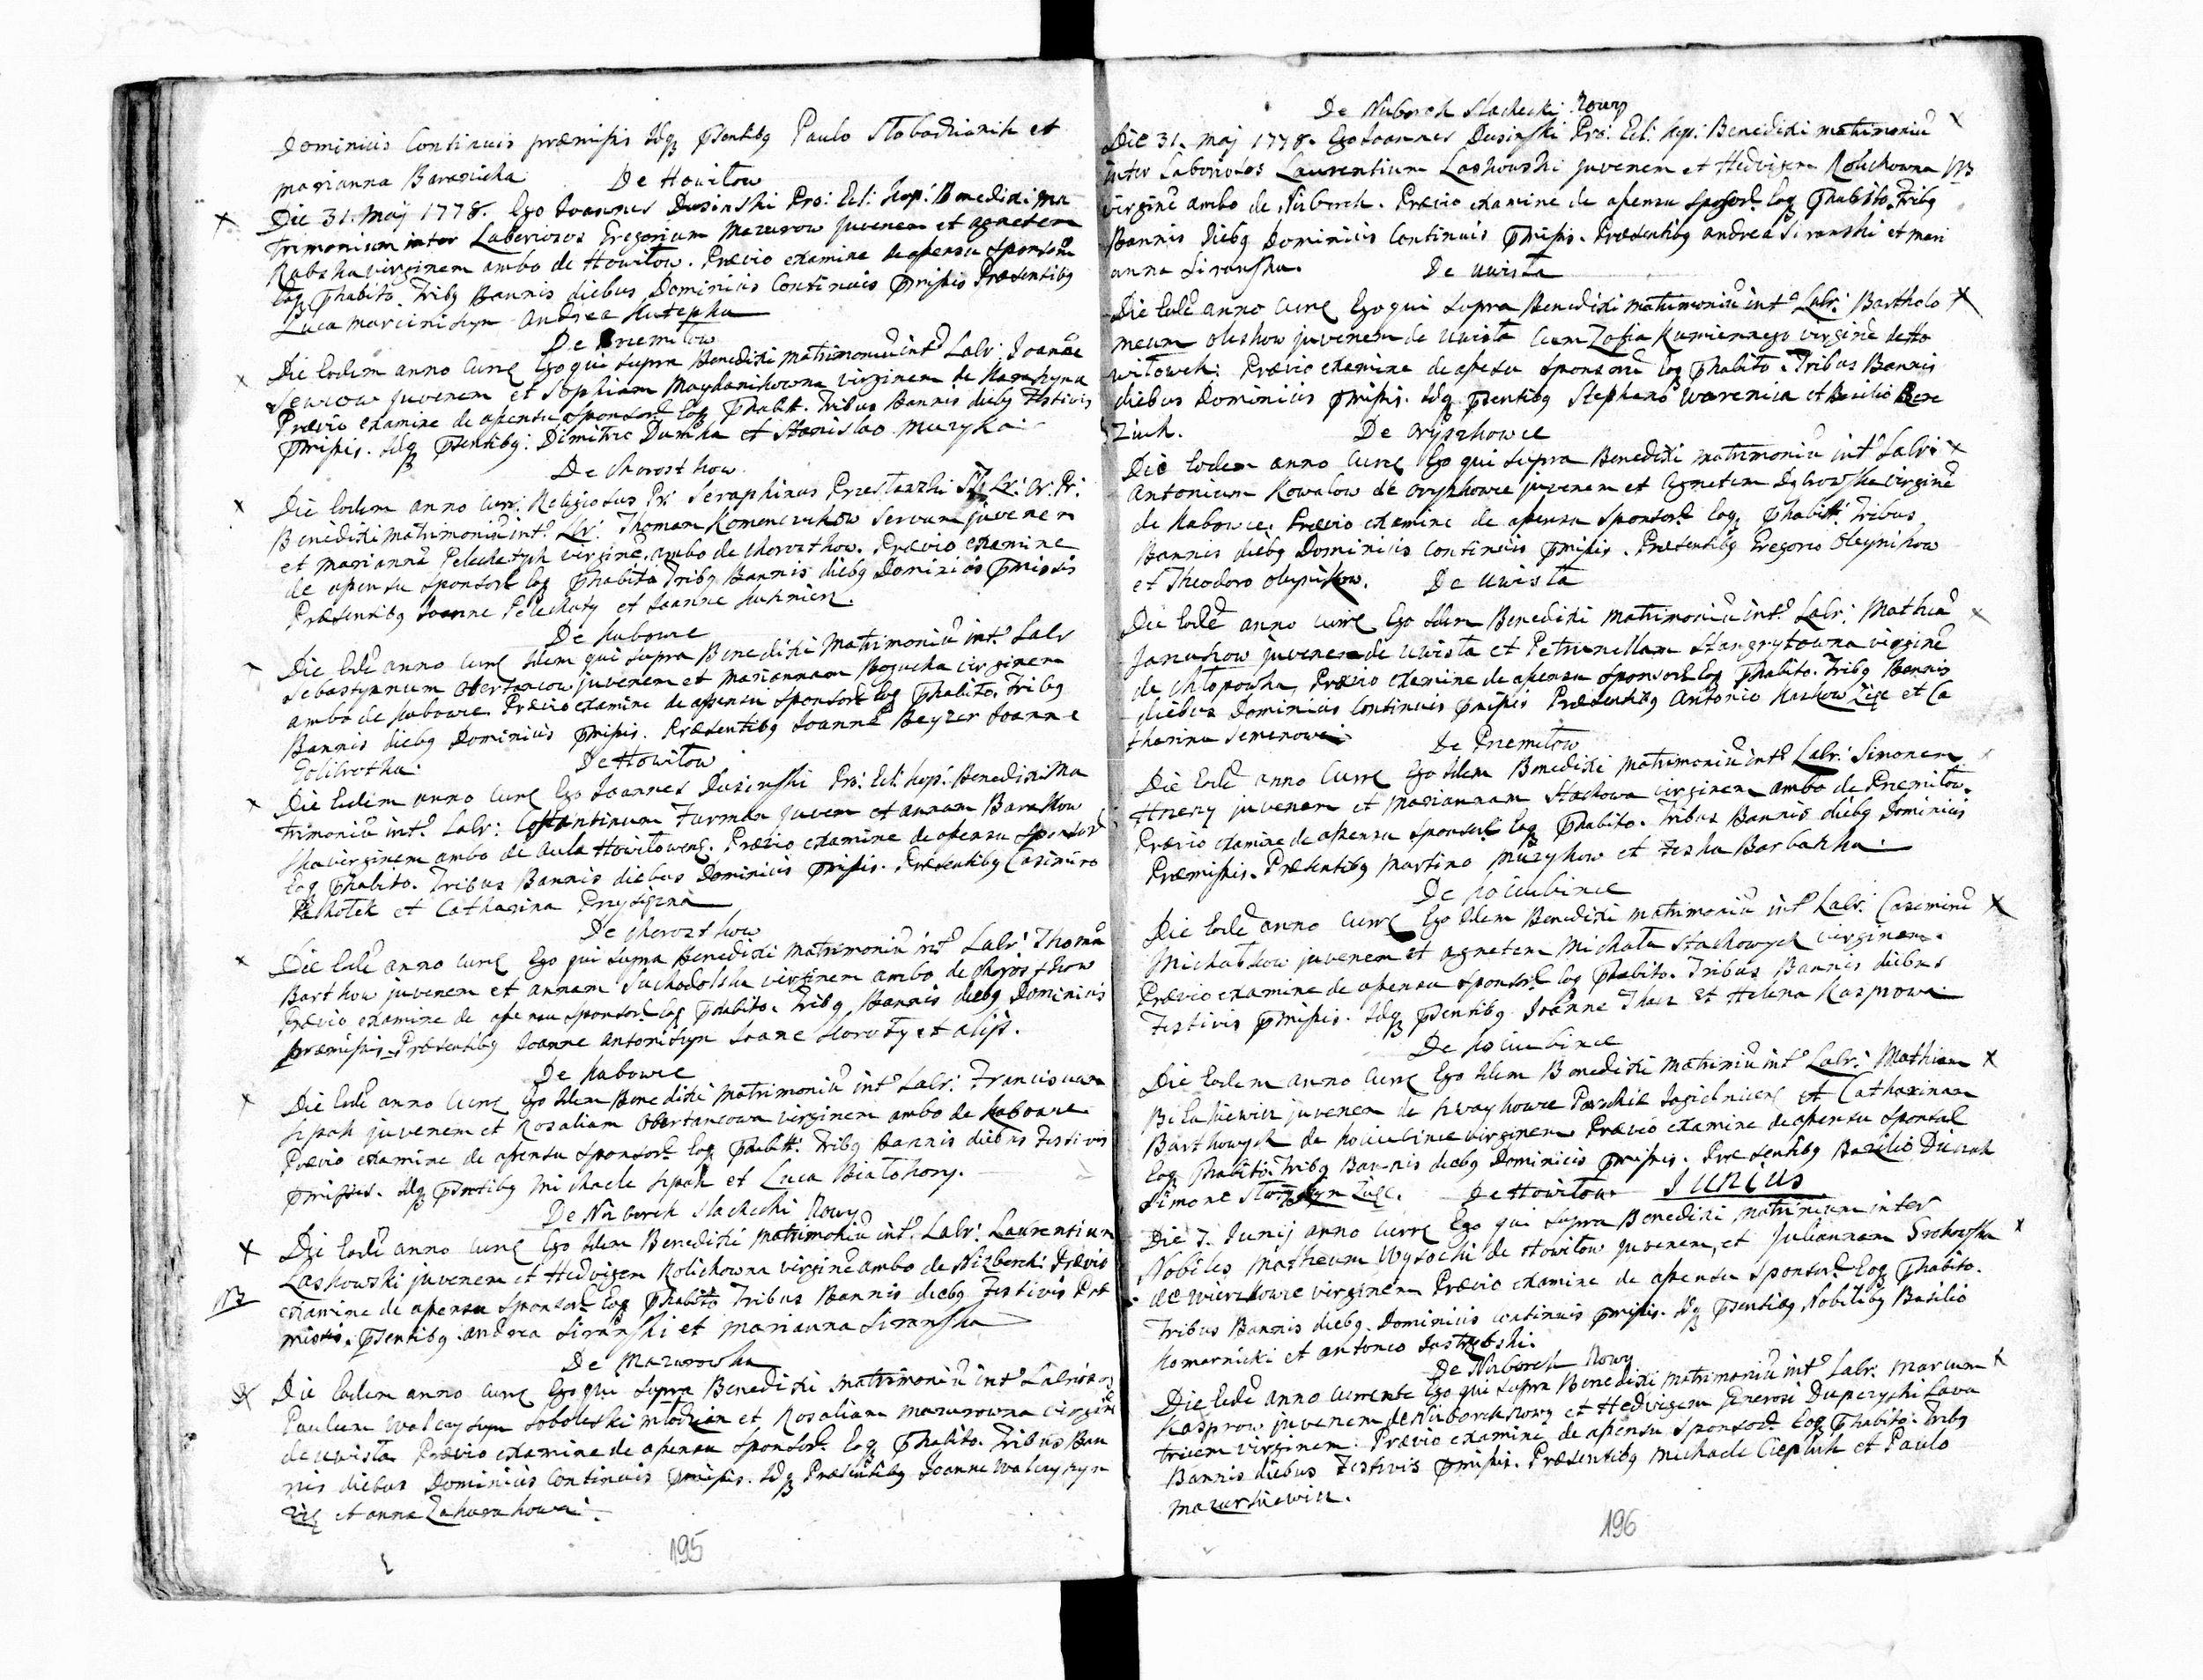 Dominicis Continuis præmissis Idq Psentibg Paulo Slobodzianik et
Marianna Baranicka
De Howiłow
Die 31. Maij 1778. Ego Joannes Dusinski Pro: Ecl: Kop: Benedixi Ma
trimonium inter Laboriosos Gregorium Mazurow juvenem et Agnetem
virginem ambo de Howiłow. Prævio examine de apensu Sponsorū
Eoq Phabito. Tribg Bannis diebus Dominicis Continuis Pmissis Præsentibg
Luca Marciniszyn Andrea
De Premiłow
Die Eodem anno Curre Ego qui supra Benedixi Matrimoniū intr Labr: Joanne
juvenem et Sophiam Maydanikowna virginem de
Prævio examine de apensu Sponsor Eoq Phabit. Tribus Bannis diebg Festivis
Pmissis. Idq Psentibg: Dimitro Dumka et Stanislao Muzyka
De Chorostkow
Die Eodem anno Curr: Religiosus Pr: Seraphinus Or: Pr:
Benedixi Matrimoniū intr Lbr: Thomam Komenczukow Servum juvenem
et Mariannā Pelechatych virginē, ambo de Chorostkow. Prævio examine
de apensu Sponsor Eoq Phabito Tribg Bannis diebg Dominicis Pmissis
Præsentibg Joanne Pelechaty et Joanne
De Habowce
Die Eodē anno Curre Idem qui supra Benedixi Matrimoniū intr Labr
Sebastyanum Obertancow juvenem et Mariannam Bogucka virginem
ambo de Habowce. Prævio examine de apensu Sponsor Eoq Phabito. Tribg
Bannis diebg Dominicis Pmissis. Præsentibg Joanne Beyzer Joanne
Golibrotka
De Howiłow
Die Eodem anno Curre Ego Joannes Dusinski Pro: Ecl: Kop: Benedixi Ma
trimoniū intr Labr: Costantinum Furman juvem et Annam Barakow
ska virginem ambo de Aula Howiłowens. Prævio examine de apensu Sponsor
Eoq Phabito. Tribus Bannis diebus Dominicis Pmissis. Præsentibg Casimiro
et Catharina
De Chorostkow
Die Eodē anno Curre Ego qui supra Benedixi Matrimoniū intr Labr: Thomā
Bartkow juvenem et Annam Suchodolska virginem ambo de Chorostkow
Prævio examine de apensu Sponsor Eoq Phabito. Tribg Bannis diebg Dominicis
præmissis. Præsentibg Joanne Antoniszyn Joane et alijs.
De Habowce
Die Eodē anno Curre Ego Idem Benedixi Matrimoniū intr Labr: Franciscum
juvenem et Rosaliam Obertancowa virginem ambo de Habowce
Prævio examine de apensu Sponsor Eoq Phabitt: Tribg Bannis diebus Festivis
Pmissis. Idq Psentibg Michaele et Luca Białohory.
De Niżborek Slachecki Nowy
Die Eodē anno Curre Ego Idem Benedixi Matrimoniū intr Labr: Laurentium
Laskowski juvenem et Hedvigem Rolichowna virginē ambo de Niżborek: Prævio
NB examine de apensu Sponsor Eoq Phabito Tribus Bannis diebg Festivis Præ
missis. Psentibg Andrea Siranski et Marianna Siranska
De Mazurowka
Die Eodem anno Curre Ego qui supra Benedixi Matrimoniū intr Labriosos
Paulum Walczyszyn Soboleski Młodzian et Rosaliam Mazurowna virginē
de Uwisła Prævio examine de apensu Sponsor Eoq Phabito. Tribus Ban
nis diebus Dominicis Continuis Pmissis. Idq Præsentibg Joanne Walczyszyn
et Anna Zakurakowa
195
De Niżborek Slachecki Nowy
Die 31. Maj 1778. Ego Joannes Dusinski Pro: Ecl: Kop: Benedixi matrimoniū
inter Laboriosos Laurentium Laskowski juvenem et Hedvigem Rolichowna NB
virginē ambo de Niżborek. Prævio examine de apensu Sponsor Eoq Phabito. Tribg
Bannis diebg Dominicis Continuis Pmissis. Præsentibg Andrea Siranski et Mari
anna Siranska.
De Uwisła
Die Eodē anno Curre Ego qui supra Benedixi Matrimoniū intr Labr: Bartholo
meum Oleskow juvenem de Uwisła Cum Zofia Kamiennego virginē de Ho
wiłowek: Prævio examine de apesu Sponsorū Eoq Phabito. Tribus Bannis
diebus Dominicis Pmissis. Idq Psentibg Stephano Warenica et Basilio Bere
ziuk.
De Oryszkowce
Die Eodem anno Curre Ego qui supra Benedixi Matrimoniū intr Labri
Antonium Kowalow de Oryszkowce juvenem et Agnetem Dąbrowska virginē
de Habowce. Prævio examine de apensu Sponsor Eoq Phabitt Tribus
Bannis diebg Dominicis Continuis Pmissis. Præsentibg Gregorio Oleynikow
et Theodoro Oleynikow.
De Uwisła
Die Eodē anno Curre Ego Idem Benedixi Matrimoniū intr Labr: Mathiā
Januskow juvenem de Uwisła et Petrunellam Stangrytowna virginē
de Chłopowka, Prævio examine de apensu Sponsor Eoq Phabito. Tribg Bannis
diebus Dominicis Continuis Pmissis Præsentibg Antonio et Ca
tharina Semenowa
De Premiłow
Die Eodē anno Curre Ego Idem Benedixi Matrimoniū intr Labr: Simonem
juvenem et Mariannam Stachowa virginem ambo de Premiłow.
Prævio examine de apensu Sponsor Eoq Phabito. Tribus Bannis diebg Dominicis
Præmissis. Præsentibg Martino Muzykow et Feska Barbarzka
De Kociubince
Die Eodē anno Curre Ego Idem Benedixi Matrimoniū intr Labr: Casimirū
Michałkow juvenem et Agnetem Michała Stachowych virginem.
Prævio examine de apensu Sponsor Eoq Phabito. Tribus Bannis diebus
Festivis Pmissis. Idq Psentibg Joanne Tkacz et Helena Kasprowa
De Kociubince
Die Eodem anno Curre Ego Idem Benedixi Matrimiū intr Labr: Mathiam
juvenem de Parochiæ Jagielnicens et Catharinam
Bartkowych de Kociubince virginem Prævio examine de apensu Sponsal
Eoq Phabito. Tribg Bannis diebg Dominicis Pmissis. Præsentibg Bazilio
Simone
De Howiłow Junius
Die 7. Junij anno Curre Ego qui supra Benedixi Matrimium inter
Nobiles Matheum Wysocki de Howiłow juvenem, et Juliannam
de Wierzbowce virginem Prævio examine de apensu Sponsor Eoq Phabito.
Tribus Bannis diebg. Dominicis Continuis Pmissis. Idq Psentibg Nobilibg Basilio
Komarnicki et Antonio Jastrzębski.
De Niżborek Nowy
Die Eodē anno Currente Ego qui supra Benedixi Matrimoniū intr Labr: Marcum
Kasprow juvenem de Niżborek Nowy et Hedvigem Generosi Duperzski Lava
tricem virginem: Prævio examine de apensu Sponsor Eoq Phabito. Tribg
Bannis diebus Festivis Pmissis. Præsentibg Michaele Cieplik et Paulo
Mazurkiewicz.
196